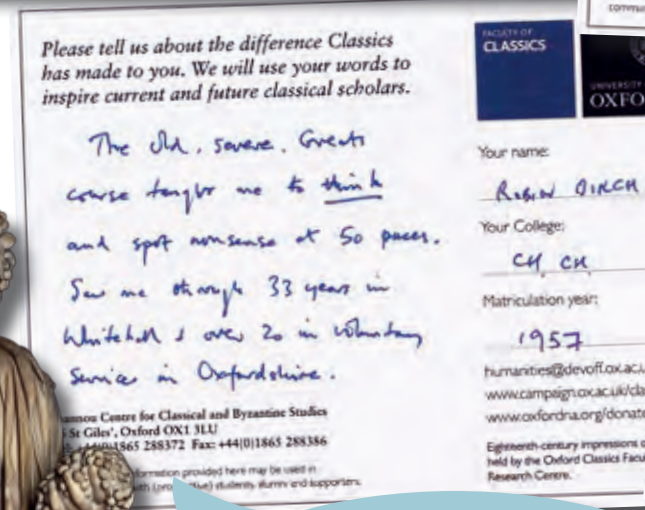 commun
Please tell us about the difference Classics
has made to you. We will use your words to
inspire current and future classical scholars.
The old, severe, Greats
course taught me to think
and spot nonsense at 50 paces.
Saw me through 33 years in
Whitehall & over 20 in voluntary
service in Oxfordshire.
Centre for Classical and Byzantine Studies
St Giles', Oxford OX1 3LU
+44(0)1865 288372 Fax: +44(0)1865 288386
formation provided here may be used in
students, alumni and supporters.
FACULTY OF
CLASSICS
UNIVERSITY
OXFO
Your name:
ROBIN BIRCH
Your College:
CH. CH.
Matriculation year:
1957
humanities@devoff.ox.ac.u
www.campaign.ox.ac.uk/cla
www.oxfordna.org/donate
Eighteenth-century impressions o
held by the Oxford Classics Facul
Research Centre.